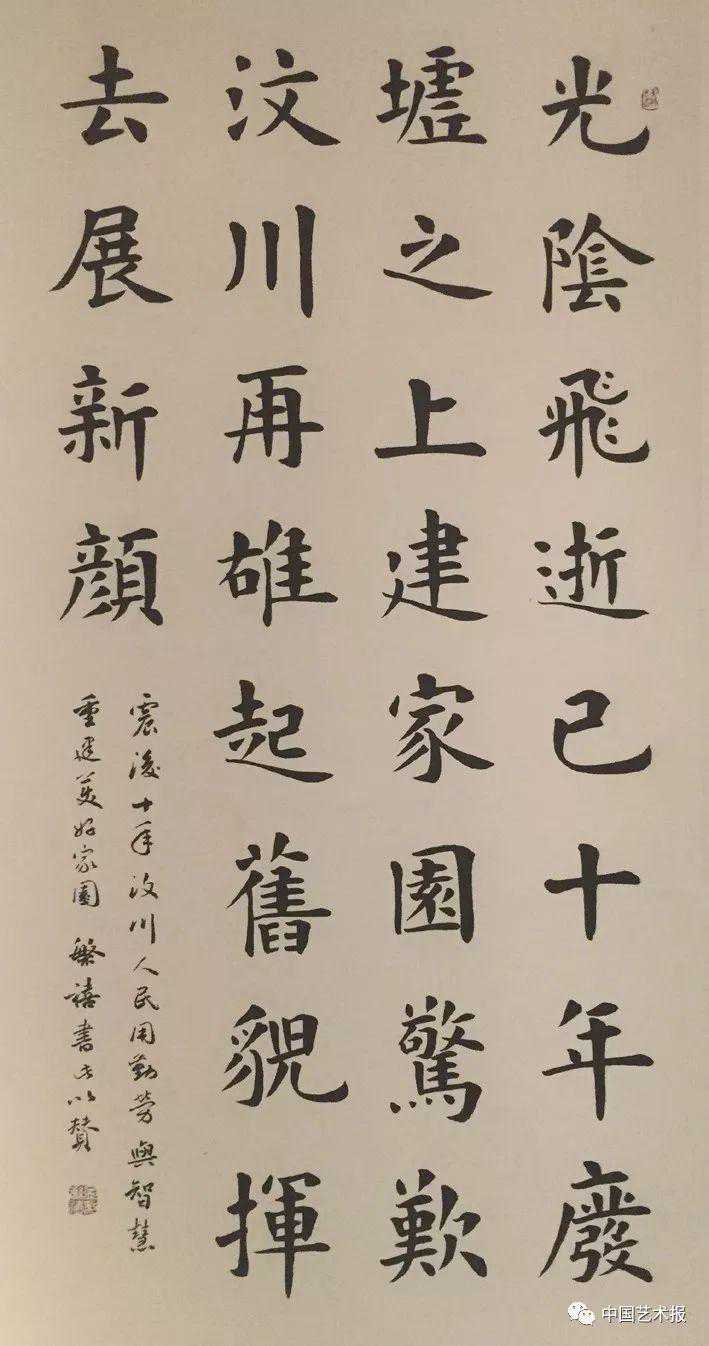 光陰飛逝已十年廢
墟之上建家園驚歎
汶川再雄起舊貎揮
去展新顏
震後十年汶川人民用勤勞與智慧
重建美好家園 繁禧書此以贊
中国艺术报